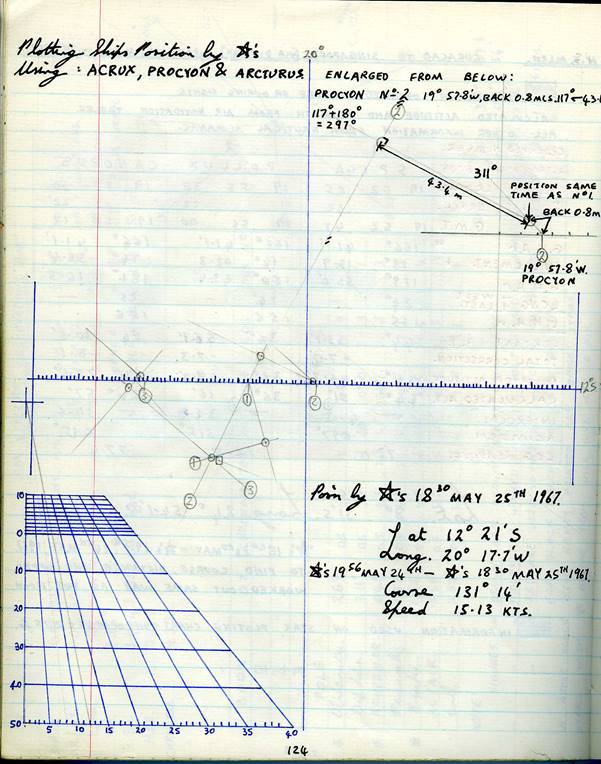 Plotting Ships Position by ☆'s
Using : ACRUX, PROCYON & ARCTURUS
20°
ENLARGED FROM BELOW:
PROCYON Nº2 19° 57.8'W, BACK 0.8MLS. 117° ← 43.4
117° + 180°
= 297°
②
43.4 m
311°
POSITION SAME
TIME AS Nº1.
BACK 0.8m
②
19° 57.8'W.
PROCYON
12°S
③
①
②
1
②
③
10
0
10
20
30
40
50
5
10
15
20
25
30
35
40
Posn by ☆'s 18³⁰ MAY 25ᵀᴴ 1967.
Lat 12° 21' S
Long. 20° 17.7'W
☆'s 19⁵⁶ MAY 24ᵀᴴ — ☆'s 18³⁰ MAY 25ᵀᴴ 1967.
Course 131° 14'
Speed 15.13 KTS.
124